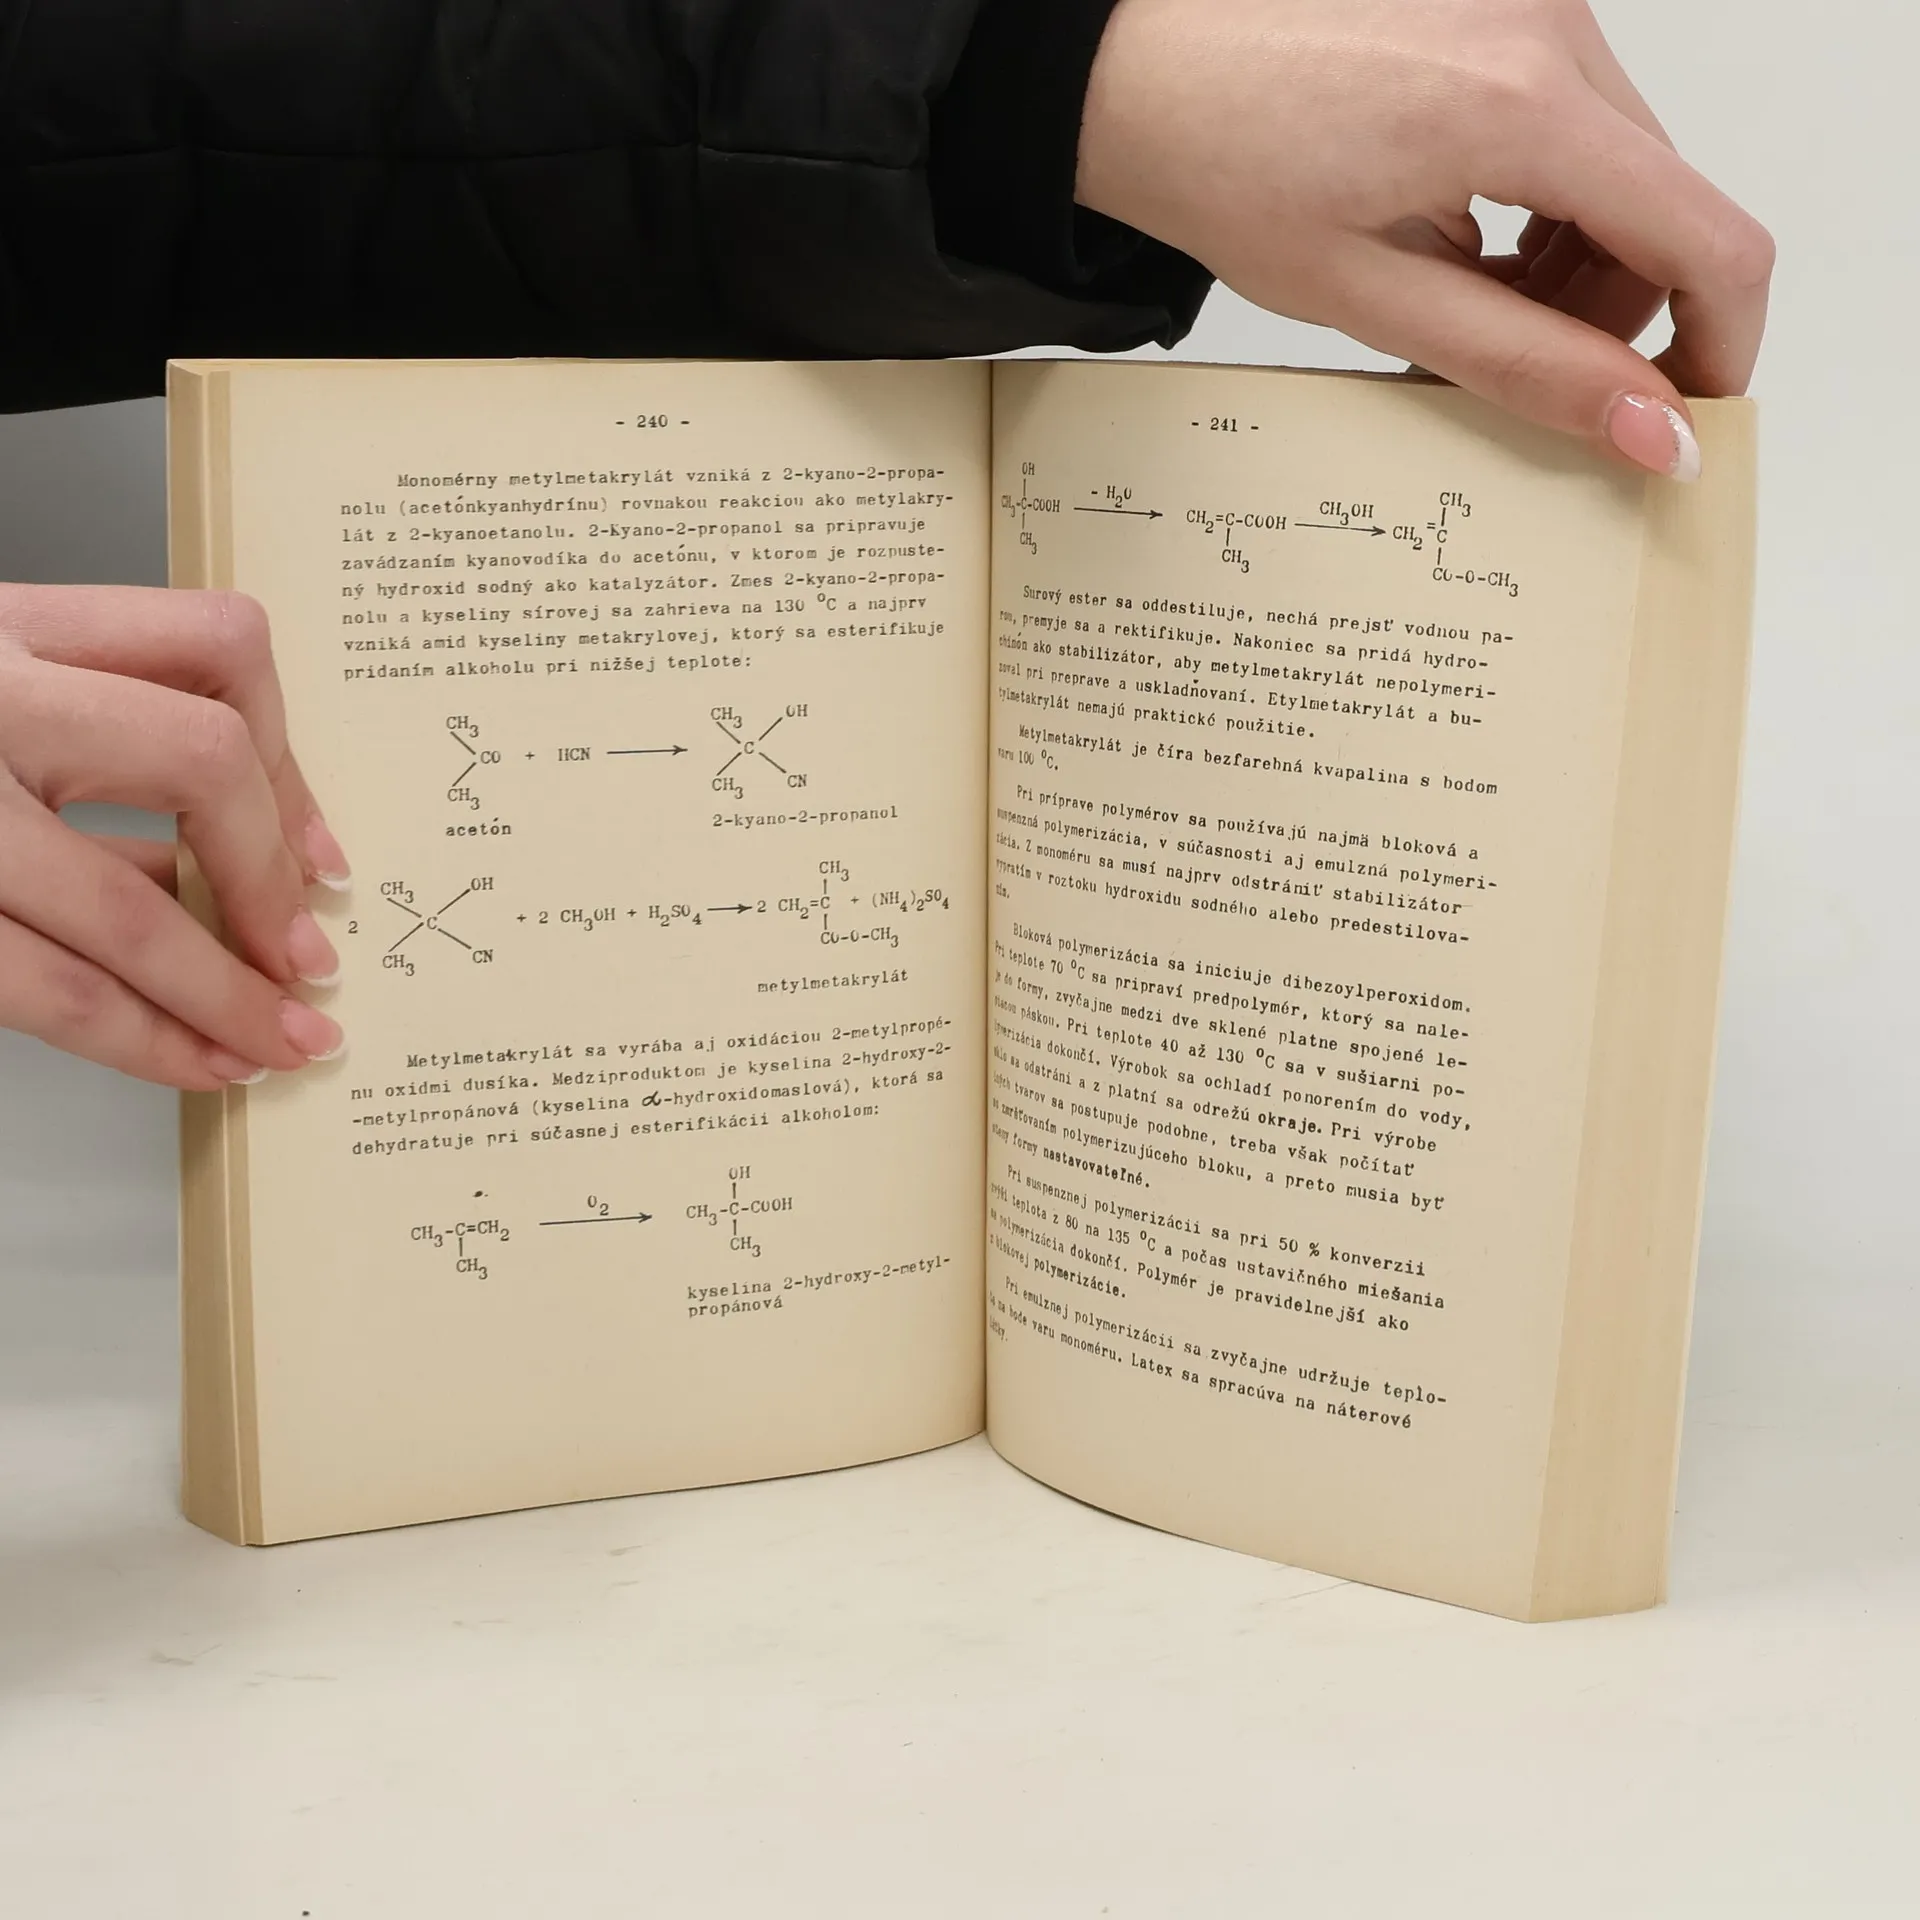 - 240 -
Monomérny metylmetakrylát vzniká z 2-kyano-2-propa-
nolu (acetónkyanhydrínu) rovnakou reakciou ako metylakry-
lát z 2-kyanoetanolu. 2-Kyano-2-propanol sa pripravuje
zavádzaním kyanovodíka do acetónu, v ktorom je rozpuste-
ný hydroxid sodný ako katalyzátor. Zmes 2-kyano-2-propa-
nolu a kyseliny sírovej sa zahrieva na 130 °C a najprv
vzniká amid kyseliny metakrylovej, ktorý sa esterifikuje
pridaním alkoholu pri nižšej teplote:
CH3 CH3 OH
CO + HCN C
CH3 CH3 CN
acetón 2-kyano-2-propanol
CH3
CH3 OH
2 C + 2 CH3OH + H2SO4 → 2 CH2=C + (NH4)2SO4
CH3 CN CO-O-CH3
metylmetakrylát
Metylmetakrylát sa vyrába aj oxidáciou 2-metylpropé-
nu oxidmi dusíka. Medziproduktom je kyselina 2-hydroxy-2-
-metylpropánová (kyselina α-hydroxidomaslová), ktorá sa
dehydratuje pri súčasnej esterifikácii alkoholom:
OH
CH3-C=CH2 O2 → CH3-C-COOH
CH3 CH3
kyselina 2-hydroxy-2-metyl-
propánová
- 241 -
OH CH3
CH3-C-COOH - H2O → CH2=C-COOH CH3OH → CH2=C
CH3 CH3 CO-O-CH3
Surový ester sa oddestiluje, nechá prejsť vodnou pa-
rou, premyje sa a rektifikuje. Nakoniec sa pridá hydro-
chinón ako stabilizátor, aby metylmetakrylát nepolymeri-
zoval pri preprave a uskladňovaní. Etylmetakrylát a bu-
tylmetakrylát nemajú praktické použitie.
Metylmetakrylát je číra bezfarebná kvapalina s bodom
varu 100 °C.
Pri príprave polymérov sa používajú najmä bloková a
suspenzná polymerizácia, v súčasnosti aj emulzná polymeri-
zácia. Z monoméru sa musí najprv odstrániť stabilizátor
vypratím v roztoku hydroxidu sodného alebo predestilova-
ním.
Bloková polymerizácia sa iniciuje dibezoylperoxidom.
Pri teplote 70 °C sa pripraví predpolymér, ktorý sa nale-
je do formy, zvyčajne medzi dve sklené platne spojené le-
piacou páskou. Pri teplote 40 až 130 °C sa v sušiarni po-
lymerizácia dokončí. Výrobok sa ochladí ponorením do vody,
sklo sa odstráni a z platní sa odrežú okraje. Pri výrobe
iných tvarov sa postupuje podobne, treba však počítať
so zmršťovaním polymerizujúceho bloku, a preto musia byť
steny formy nastavovateľné.
Pri suspenznej polymerizácii sa pri 50 % konverzii
zvýši teplota z 80 na 135 °C a počas ustavičného miešania
sa polymerizácia dokončí. Polymér je pravidelnejší ako
z blokovej polymerizácie.
Pri emulznej polymerizácii sa zvyčajne udržuje teplo-
ta na bode varu monoméru. Latex sa spracúva na náterové
látky.